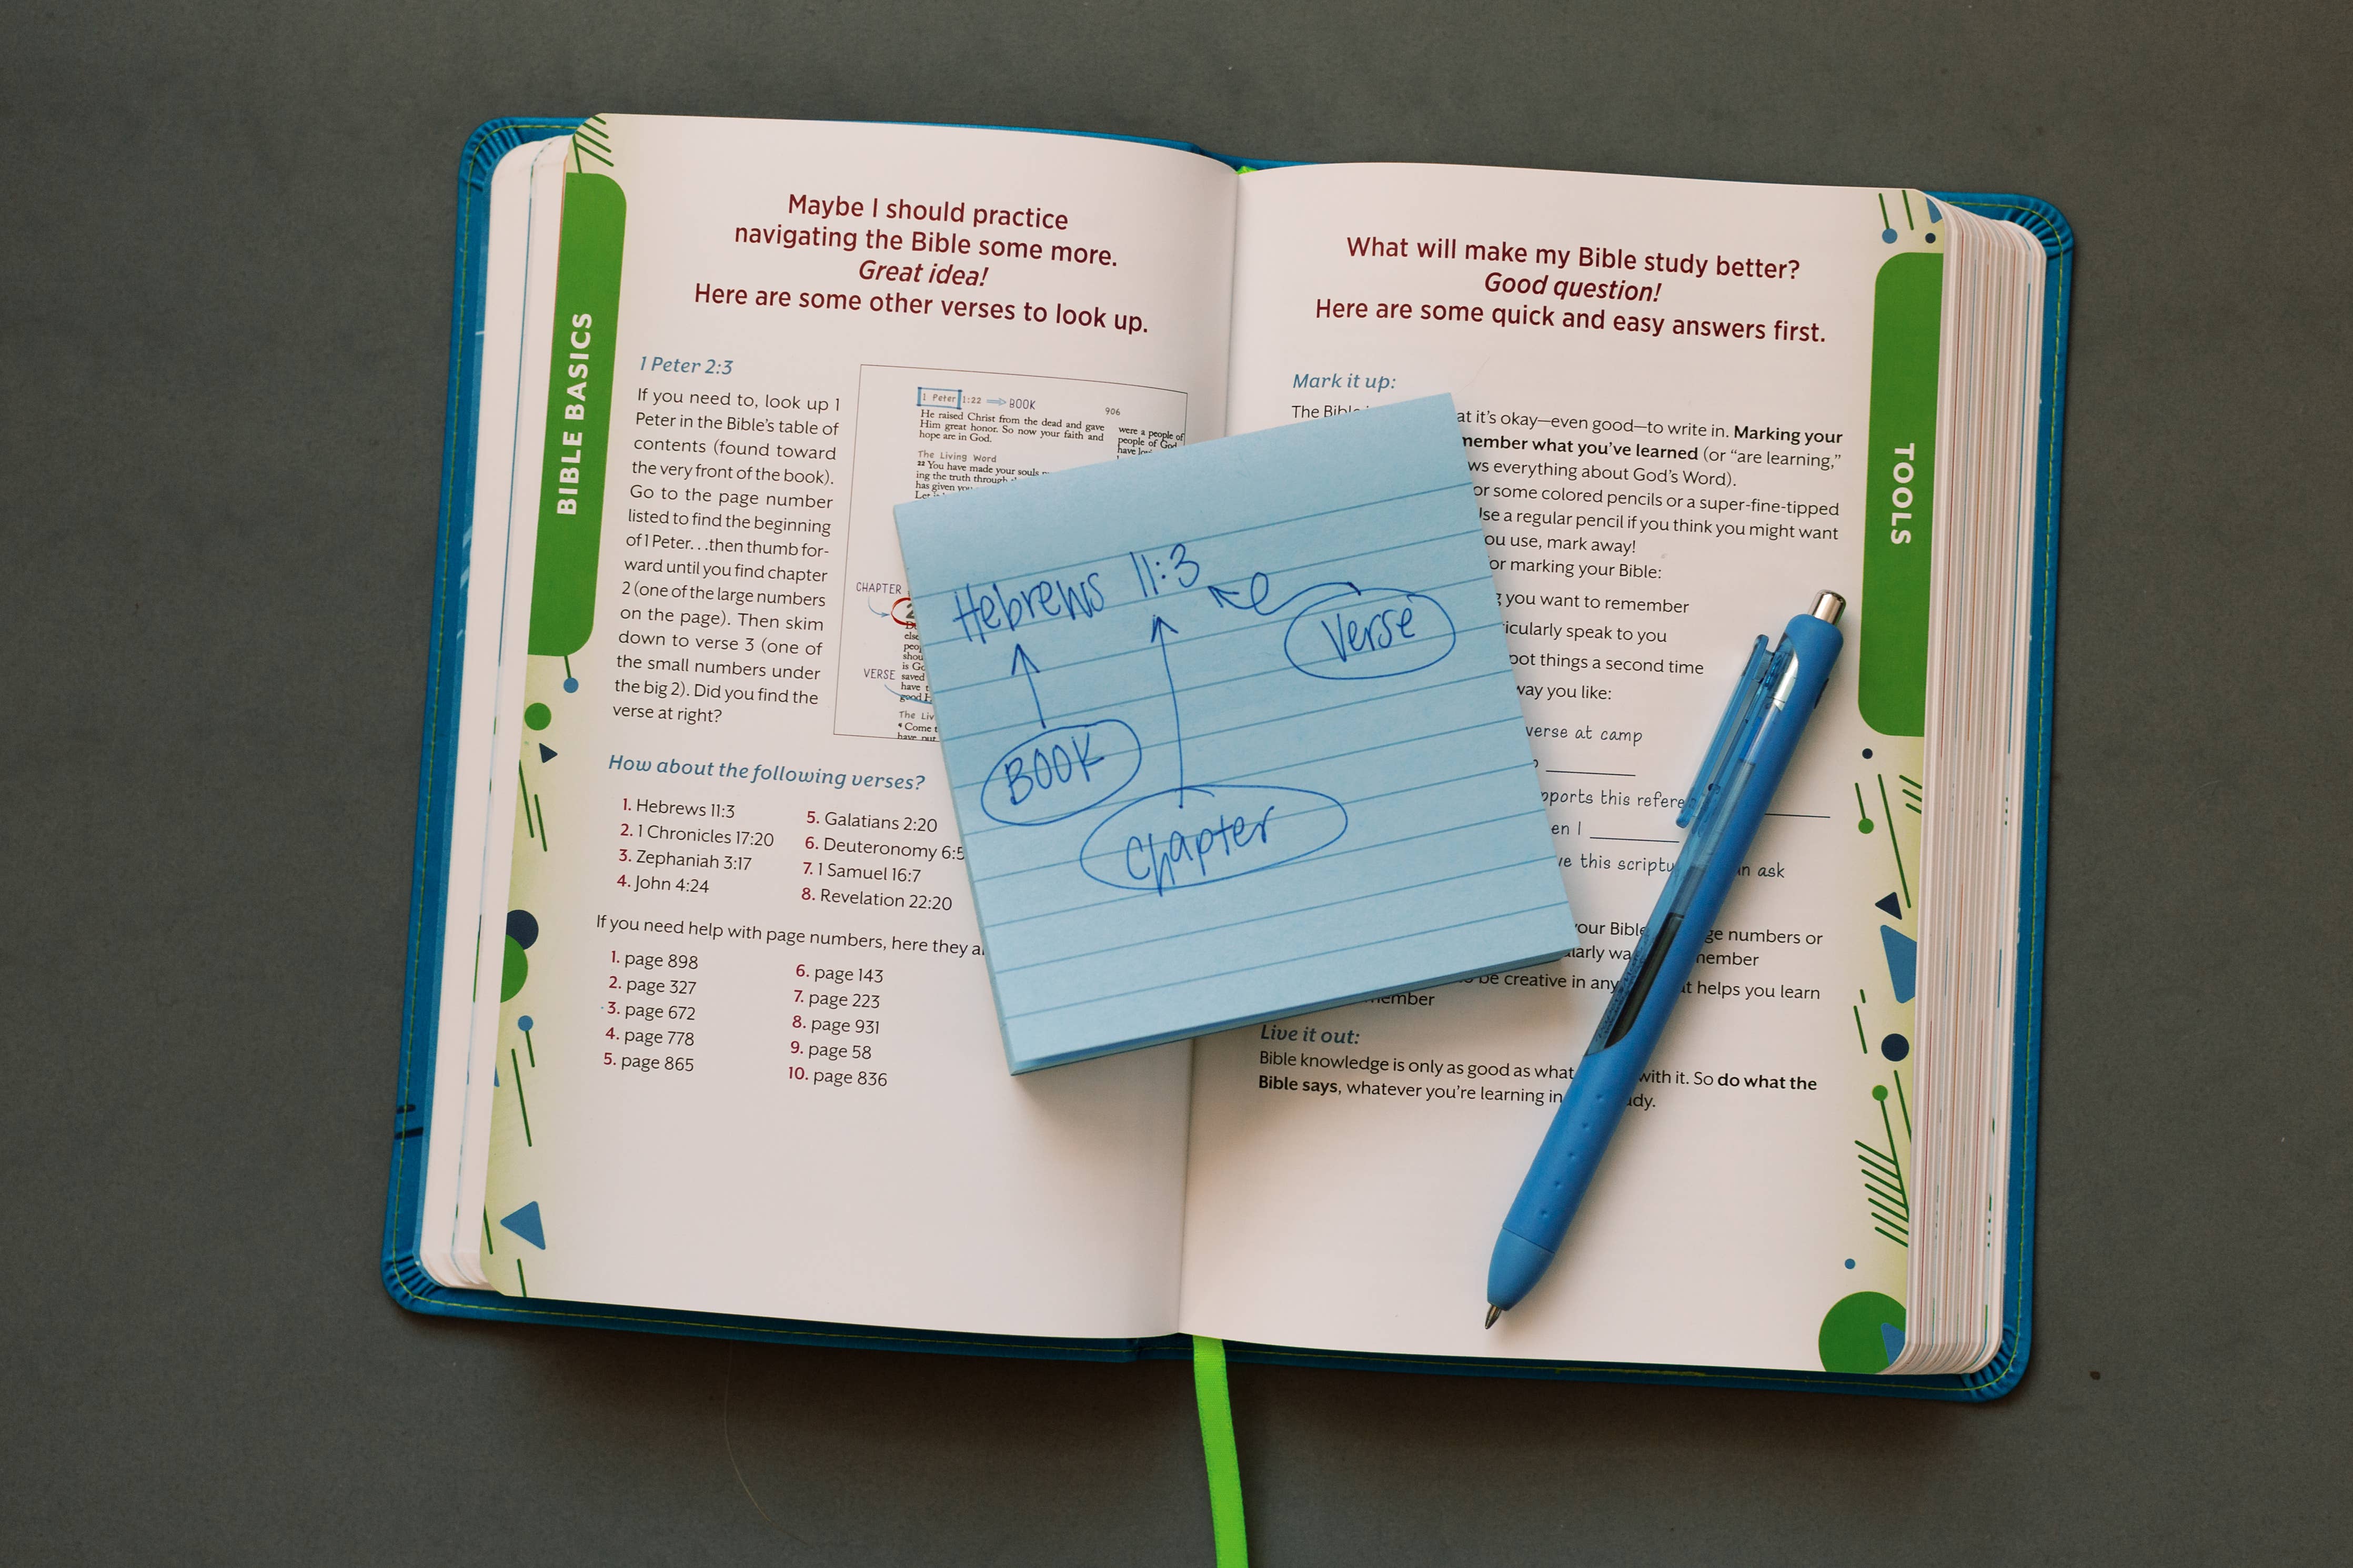 BIBLE BASICS
Maybe I should practice
navigating the Bible some more.
Great idea!
Here are some other verses to look up.
1 Peter 2:3
If you need to, look up 1
Peter in the Bible's table of
contents (found toward
the very front of the book).
Go to the page number
listed to find the beginning
of 1 Peter...then thumb for-
ward until you find chapter
2 (one of the large numbers
on the page). Then skim
down to verse 3 (one of
the small numbers under
the big 2). Did you find the
verse at right?
1 Peter 1:22 BOOK
906
He raised Christ from the dead and gave
Him great honor. So now your faith and
hope are in God.
The Living Word
22 You have made your souls
ing the truth through
has given you
were a people of
people of God
CHAPTER
VERSE
saved
have t
good
The Liv
4 Come t
have put
How about the following verses?
1. Hebrews 11:3
2. 1 Chronicles 17:20
3. Zephaniah 3:17
4. John 4:24
5. Galatians 2:20
6. Deuteronomy 6:5
7. 1 Samuel 16:7
8. Revelation 22:20
If you need help with page numbers, here they
1. page 898
2. page 327
3. page 672
4. page 778
5. page 865
6. page 143
7. page 223
8. page 931
9. page 58
10. page 836
Hebrews 11:3
Verse
BOOK
Chapter
TOOLS
What will make my Bible study better?
Good question!
Here are some quick and easy answers first.
Mark it up:
The Bible
at it's okay—even good—to write in. Marking your
member what you've learned (or "are learning,"
ws everything about God's Word).
or some colored pencils or a super-fine-tipped
Use a regular pencil if you think you might want
ou use, mark away!
or marking your Bible:
you want to remember
icularly speak to you
pot things a second time
way you like:
verse at camp
pports this refere
en I
ve this scriptu an ask
your Bible ge numbers or
larly wa member
be creative in any t helps you learn
member
Live it out:
Bible knowledge is only as good as what with it. So do what the
Bible says, whatever you're learning in dy.